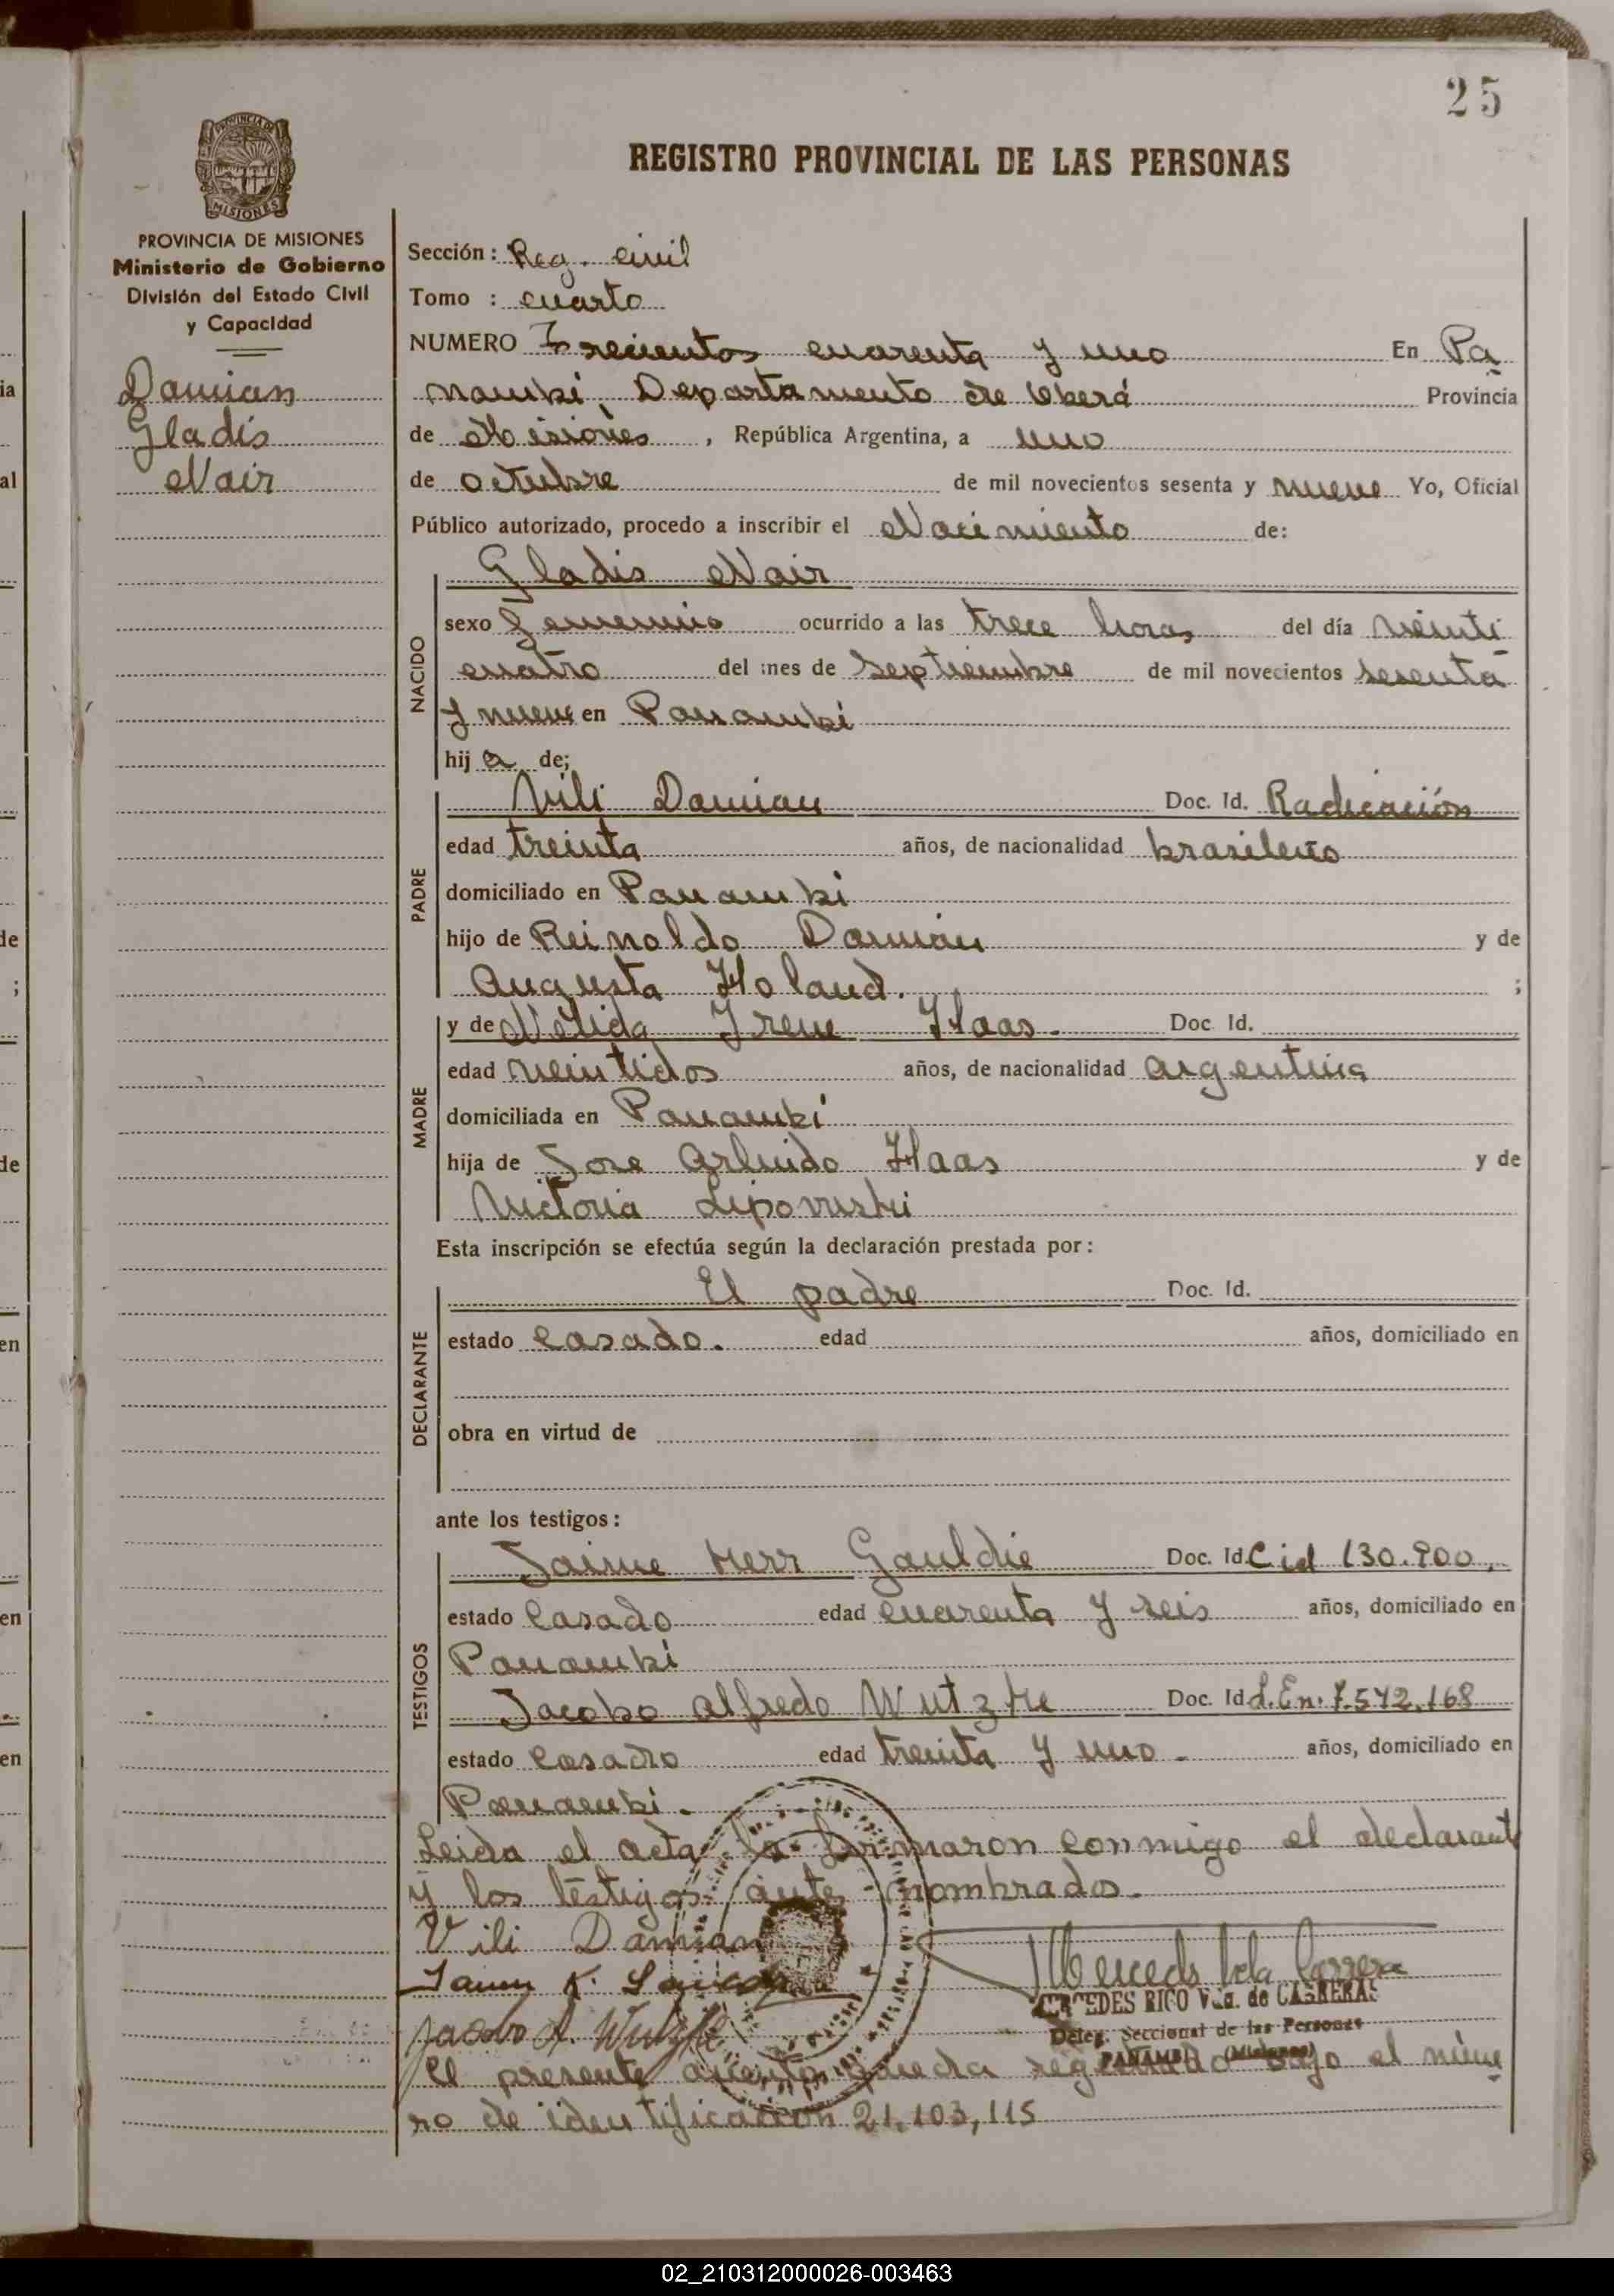 25
REGISTRO PROVINCIAL DE LAS PERSONAS
PROVINCIA DE MISIONES
Ministerio de Gobierno
División del Estado Civil
y Capacidad
Damian
Gladis
Nair
Sección: Reg. civil
Tomo : cuarto
NUMERO Trecientos cuarenta y uno En Pa
nambi Departamento de Oberá Provincia
de Misiones, República Argentina, a uno
de octubre de mil novecientos sesenta y nueve Yo, Oficial
Público autorizado, procedo a inscribir el Nacimiento de:
NACIDO
Gladis Nair
sexo femenino ocurrido a las trece horas del día veinti
cuatro del mes de Septiembre de mil novecientos sesenta
y nueve en Panambi
hija de;
PADRE
Vili Damian Doc. Id. Radicación
edad treinta años, de nacionalidad brasileño
domiciliado en Panambi
hijo de Reinoldo Damian y de
Augusta Holand. ;
MADRE
y de Nelida Irene Haas. Doc. Id.
edad veintidos años, de nacionalidad argentina
domiciliada en Panambi
hija de Jose Arlindo Haas y de
Victoria
Esta inscripción se efectúa según la declaración prestada por:
DECLARANTE
El padre Doc. Id.
estado casado. edad años, domiciliado en
obra en virtud de
ante los testigos:
TESTIGOS
Jaime Kerr Gouldie Doc. Id. Cid 130.900.
estado casado edad cuarenta y seis años, domiciliado en
Panambi
Jacobo Alfredo Wutzke Doc. Id. L.En. 7.572.168
estado casado edad treinta y uno. años, domiciliado en
Panambi.
Leida el acta la firmaron conmigo el declarante
y los testigos antes nombrados.
Vili Damian
Jacobo A. Wutzke
MERCEDES RICO Vda. de CARRERAS
Deleg. Seccional de las Personas
PANAMBI (Misiones)
El presente asiento queda registrado bajo el núme
ro de identificacion 21,103,115
02_210312000026-003463